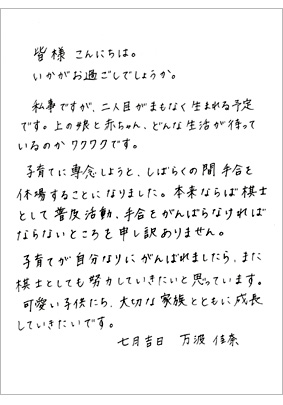 皆様 こんにちは。
いかがお過ごしでしょうか。
私事ですが、二人目がまもなく生まれる予定
です。上の娘と赤ちゃん、どんな生活が待って
いるのかワクワクです。
子育てに専念しようと、しばらくの間手合を
休場することになりました。本来ならば棋士
として普及活動、手合をがんばらなければ
ならないところを申し訳ありません。
子育てが自分なりにがんばれましたら、また
棋士としても努力していきたいと思っています。
可愛い子供たち、大切な家族とともに成長
していきたいです。
七月吉日 万波 佳奈